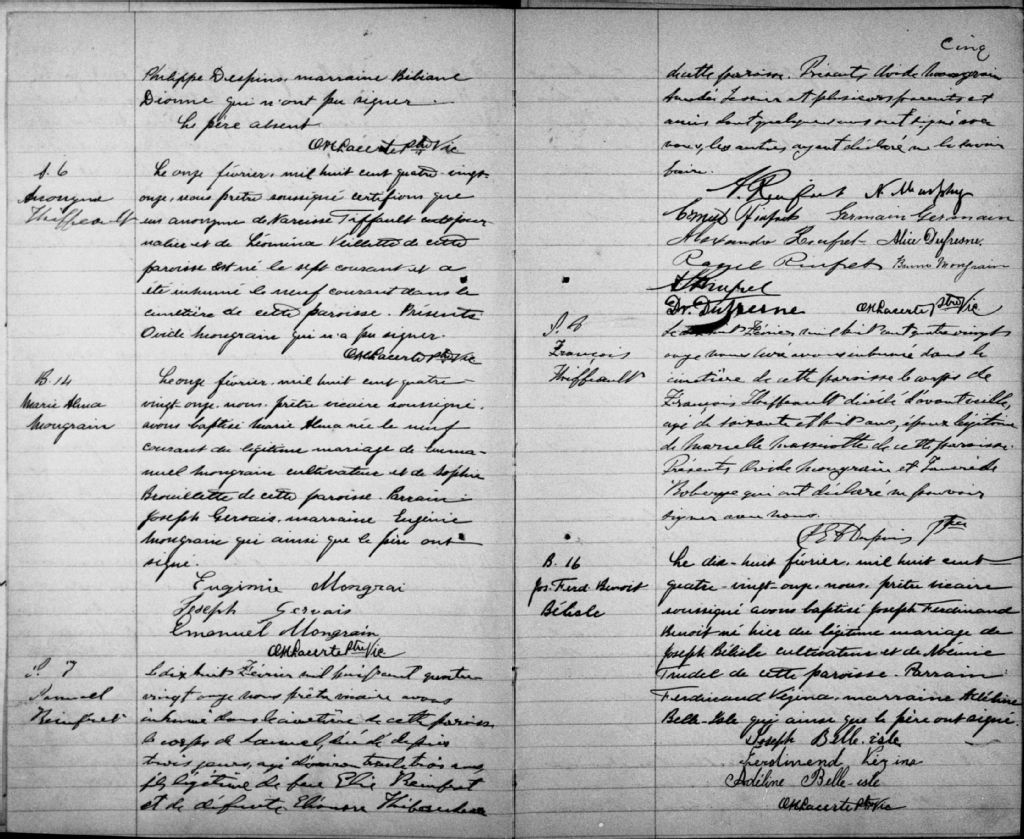 Philippe Despins, marraine Bibiane
Dionne qui n'ont pu signer.
Le père absent
OHLacerte Ptre Vic
S. 6
Anonyme
Thiffeault
Le onze février, mil huit cent quatre-vingt-
onze, nous prêtre soussigné certifions que
un anonyme de Narcisse Tiffault
nalier et de Léonina Veillette de cette
paroisse est né le sept courant et a
été inhumé le neuf courant dans le
cimetière de cette paroisse. Présents
Ovide Mongrain qui n'a pu signer.
OHLacerte Ptre Vic
B. 14
Marie Alma
Mongrain
Le onze février, mil huit cent quatre-
vingt-onze, nous, prêtre vicaire soussigné,
avons baptisé Marie Alma née le neuf
courant du légitime mariage de Emma-
nuel Mongrain cultivateur et de Sophie
Brouillette de cette paroisse. Parrain
Joseph Gervais, marraine Eugénie
Mongrain qui ainsi que le père ont
signé.
Eugénie Mongrai
Joseph Gervais
Emanuel Mongrain
OHLacerte Ptre Vic
S. 7
Samuel
Rinfret
Le dix huit Février mil huit cent quatre
vingt onze nous prêtre vicaire avons
inhumé dans le cimetière de cette paroisse
le corps de Samuel, décédé depuis
trois jours, agé d'environ trente trois ans,
fils légitime de feu Elie Rinfret
et de défunte Thibaudeau
Cinq
de cette paroisse. Présents Ovide Mongrain
et plusieurs parents et
amis dont quelques uns ont signé avec
nous, les autres ayant déclaré ne le savoir
faire.
Rinfret N. Murphy
Rinfret Germain Germain
Alexandre Rinfret - Alice Dufresne.
Rinfret Bruno Mongrain
Rinfret
Dr. Dufresne OHLacerte Ptre Vic
S. 8
François
Thiffeault
Février mil huit cent quatre vingt
onze nous curé avons inhumé dans le
cimetière de cette paroisse le corps de
François Thiffeault décédé l'avant veille,
agé de soixante et huit ans, époux légitime
de Marcelle Massicotte de cette paroisse.
Présents Ovide Mongrain et
Roberge qui ont déclaré ne pouvoir
signer avec nous.
Dupuis Ptre
B. 16
Jos. Ferd. Benoit
Bélisle
Le dix-huit février, mil huit cent
quatre-vingt-onze, nous, prêtre vicaire
soussigné avons baptisé Joseph Ferdinand
Benoit né hier du légitime mariage de
Joseph Bélisle cultivateur et de Noémie
Trudel de cette paroisse. Parrain
Ferdinand Vézina, marraine Adéline
Belle-Isle qui ainsi que le père ont signé.
Joseph Belle-isle
Ferdinend Vézina
Adéline Belle-isle
OHLacerte Ptre Vic